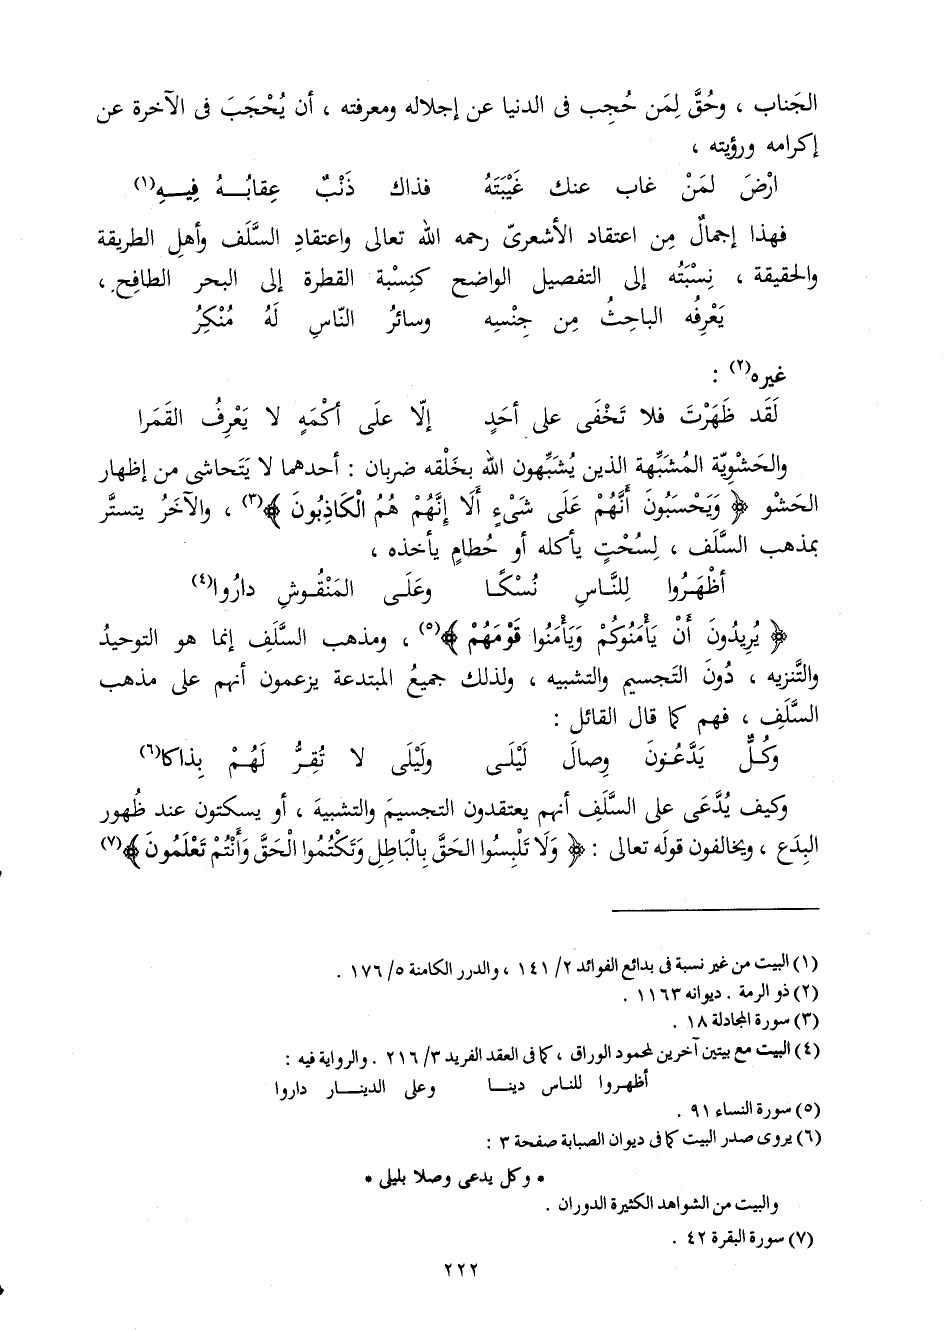 الجَناب ، وحُقَّ لِمَن حُجِب فى الدنيا عن إجلاله ومعرفته ، أن يُحْجَبَ فى الآخرة عن
إكرامه ورؤيته ،
ارْضَ لمَنْ غاب عنك غَيْبَتَهُ فذاك ذَنْبٌ عِقابُـــهُ فِيـــهِ(١)
فهذا إجمالٌ مِن اعتقاد الأشعرىّ رحمه الله تعالى واعتقادِ السَّلَف وأهلِ الطريقة
والحقيقة ، نِسْبَتُه إلى التفصيل الواضح كنِسْبة القطرة إلى البحر الطافِحِ ،
يَعْرِفُه الباحِثُ مِن جِنْسِه وسائرُ النّاس لَهُ مُنْكِرُ
غيره(٢) :
لَقَد ظَهَرْتَ فلا تَخْفَى على أحَدٍ إلّا علَى أكْمَهٍ لا يَعْرِفُ القَمَرا
والحَشْوِيّة المُشبِّهة الذين يُشبِّهون الله بخَلْقه ضربان : أحدهما لا يَتَحاشى من إظهار
الحَشْو ﴿ وَيَحْسَبُونَ أَنَّهُمْ عَلَى شَىْءٍ أَلَا إِنَّهُمْ هُمُ الْكَاذِبُونَ ﴾(٣) ، والآخَرُ يتستَّر
بمذهب السَّلَف ، لِسُحْتٍ يأكله أو حُطامٍ يأخذه ،
أظْهَـرُوا لِلنَّـاسِ نُسْكًـا وعَلَـى المَنْقُـوشِ دارُوا(٤)
﴿ يُرِيدُونَ أَنْ يَأْمَنُوكُمْ وَيَأْمَنُوا قَوْمَهُمْ ﴾(٥) ، ومذهب السَّلَفِ إنما هو التوحيدُ
والتَّنزيه ، دُونَ التَجسيم والتشبيه ، ولذلك جميعُ المبتدعة يزعمون أنهم على مذهب
السَّلَفِ ، فهم كما قال القائل :
وكُـلٌّ يَدَّعُـونَ وِصالَ لَيْلَـى ولَيْلَى لا تُقِـرُّ لَهُـمْ بِذاكا(٦)
وكيف يُدَّعَى على السَّلَفِ أنهم يعتقدون التجسيمَ والتشبيهَ ، أو يسكتون عند ظُهور
البِدَع ، ويخالفون قولَه تعالى : ﴿ وَلَا تَلْبِسُوا الحَقَّ بِالْبَاطِلِ وَتَكْتُمُوا الْحَقَّ وَأَنْتُمْ تَعْلَمُونَ ﴾(٧)
(١) البيت من غير نسبة فى بدائع الفوائد ٢/ ١٤١ ، والدرر الكامنة ٥/ ١٧٦ .
(٢) ذو الرمة . ديوانه ١١٦٣ .
(٣) سورة المجادلة ١٨ .
(٤) البيت مع بيتين آخرين لمحمود الوراق ، كما فى العقد الفريد ٣/ ٢١٦ . والرواية فيه :
أظهـروا للنـاس دينـا وعلى الدينـــار داروا
(٥) سورة النساء ٩١ .
(٦) يروى صدر البيت كما فى ديوان الصبابة صفحة ٣ :
* وكل يدعى وصلا بليلى *
والبيت من الشواهد الكثيرة الدوران .
(٧) سورة البقرة ٤٢ .
٢٢٢